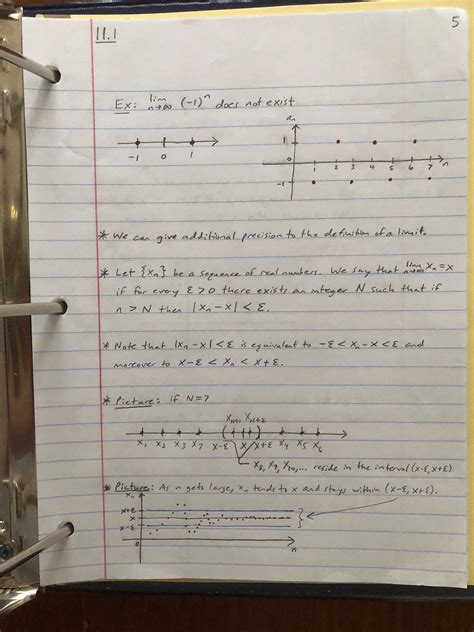 11.1
5
Ex: lim n→∞ (-1)^n does not exist
-1 0 1
aₙ
1
0
-1
1 2 3 4 5 6 7 n
* We can give additional precision to the definition of a limit.
* Let {xₙ} be a sequence of real numbers. We say that lim n→∞ xₙ = x
if for every ε > 0 there exists an integer N such that if
n > N then |xₙ - x| < ε.
* Note that |xₙ - x| < ε is equivalent to -ε < xₙ - x < ε and
moreover to x-ε < xₙ < x+ε.
* Picture: If N=7
x_N+1 x_N+2
x₁ x₂ x₃ x₇ x-ε x x+ε x₄ x₅ x₆
x₈, x₉, x₁₀, ... reside in the interval (x-ε, x+ε)
* Picture: As n gets large, xₙ tends to x and stays within (x-ε, x+ε).
xₙ
x+ε
x
x-ε
0
n